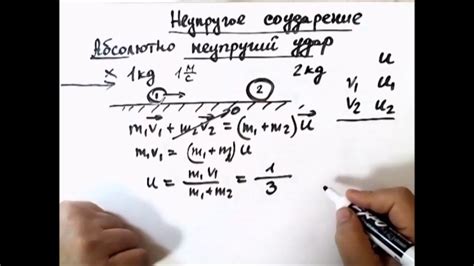 Неупругое соударение
Абсолютно неупругий удар
x 1kg 1 м/с 2kg u
1 2 v₁ u₁
v₂ u₂
m₁v⃗₁ + m₂v⃗₂ = (m₁+m₂)u⃗
0
m₁v₁ = (m₁+m₂)u
u = m₁v₁/(m₁+m₂) = 1/3